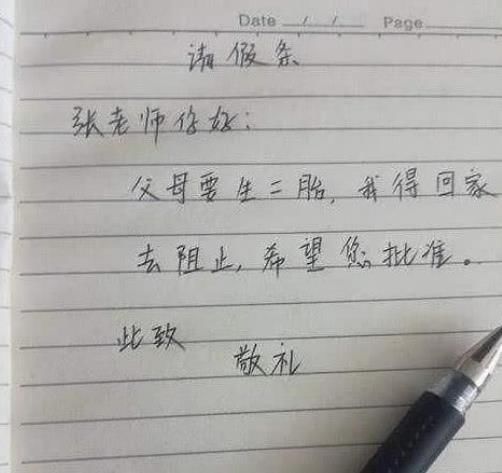 Date / / Page
请假条
张老师你好:
父母要生二胎,我得回家
去阻止,希望您批准。
此致
敬礼